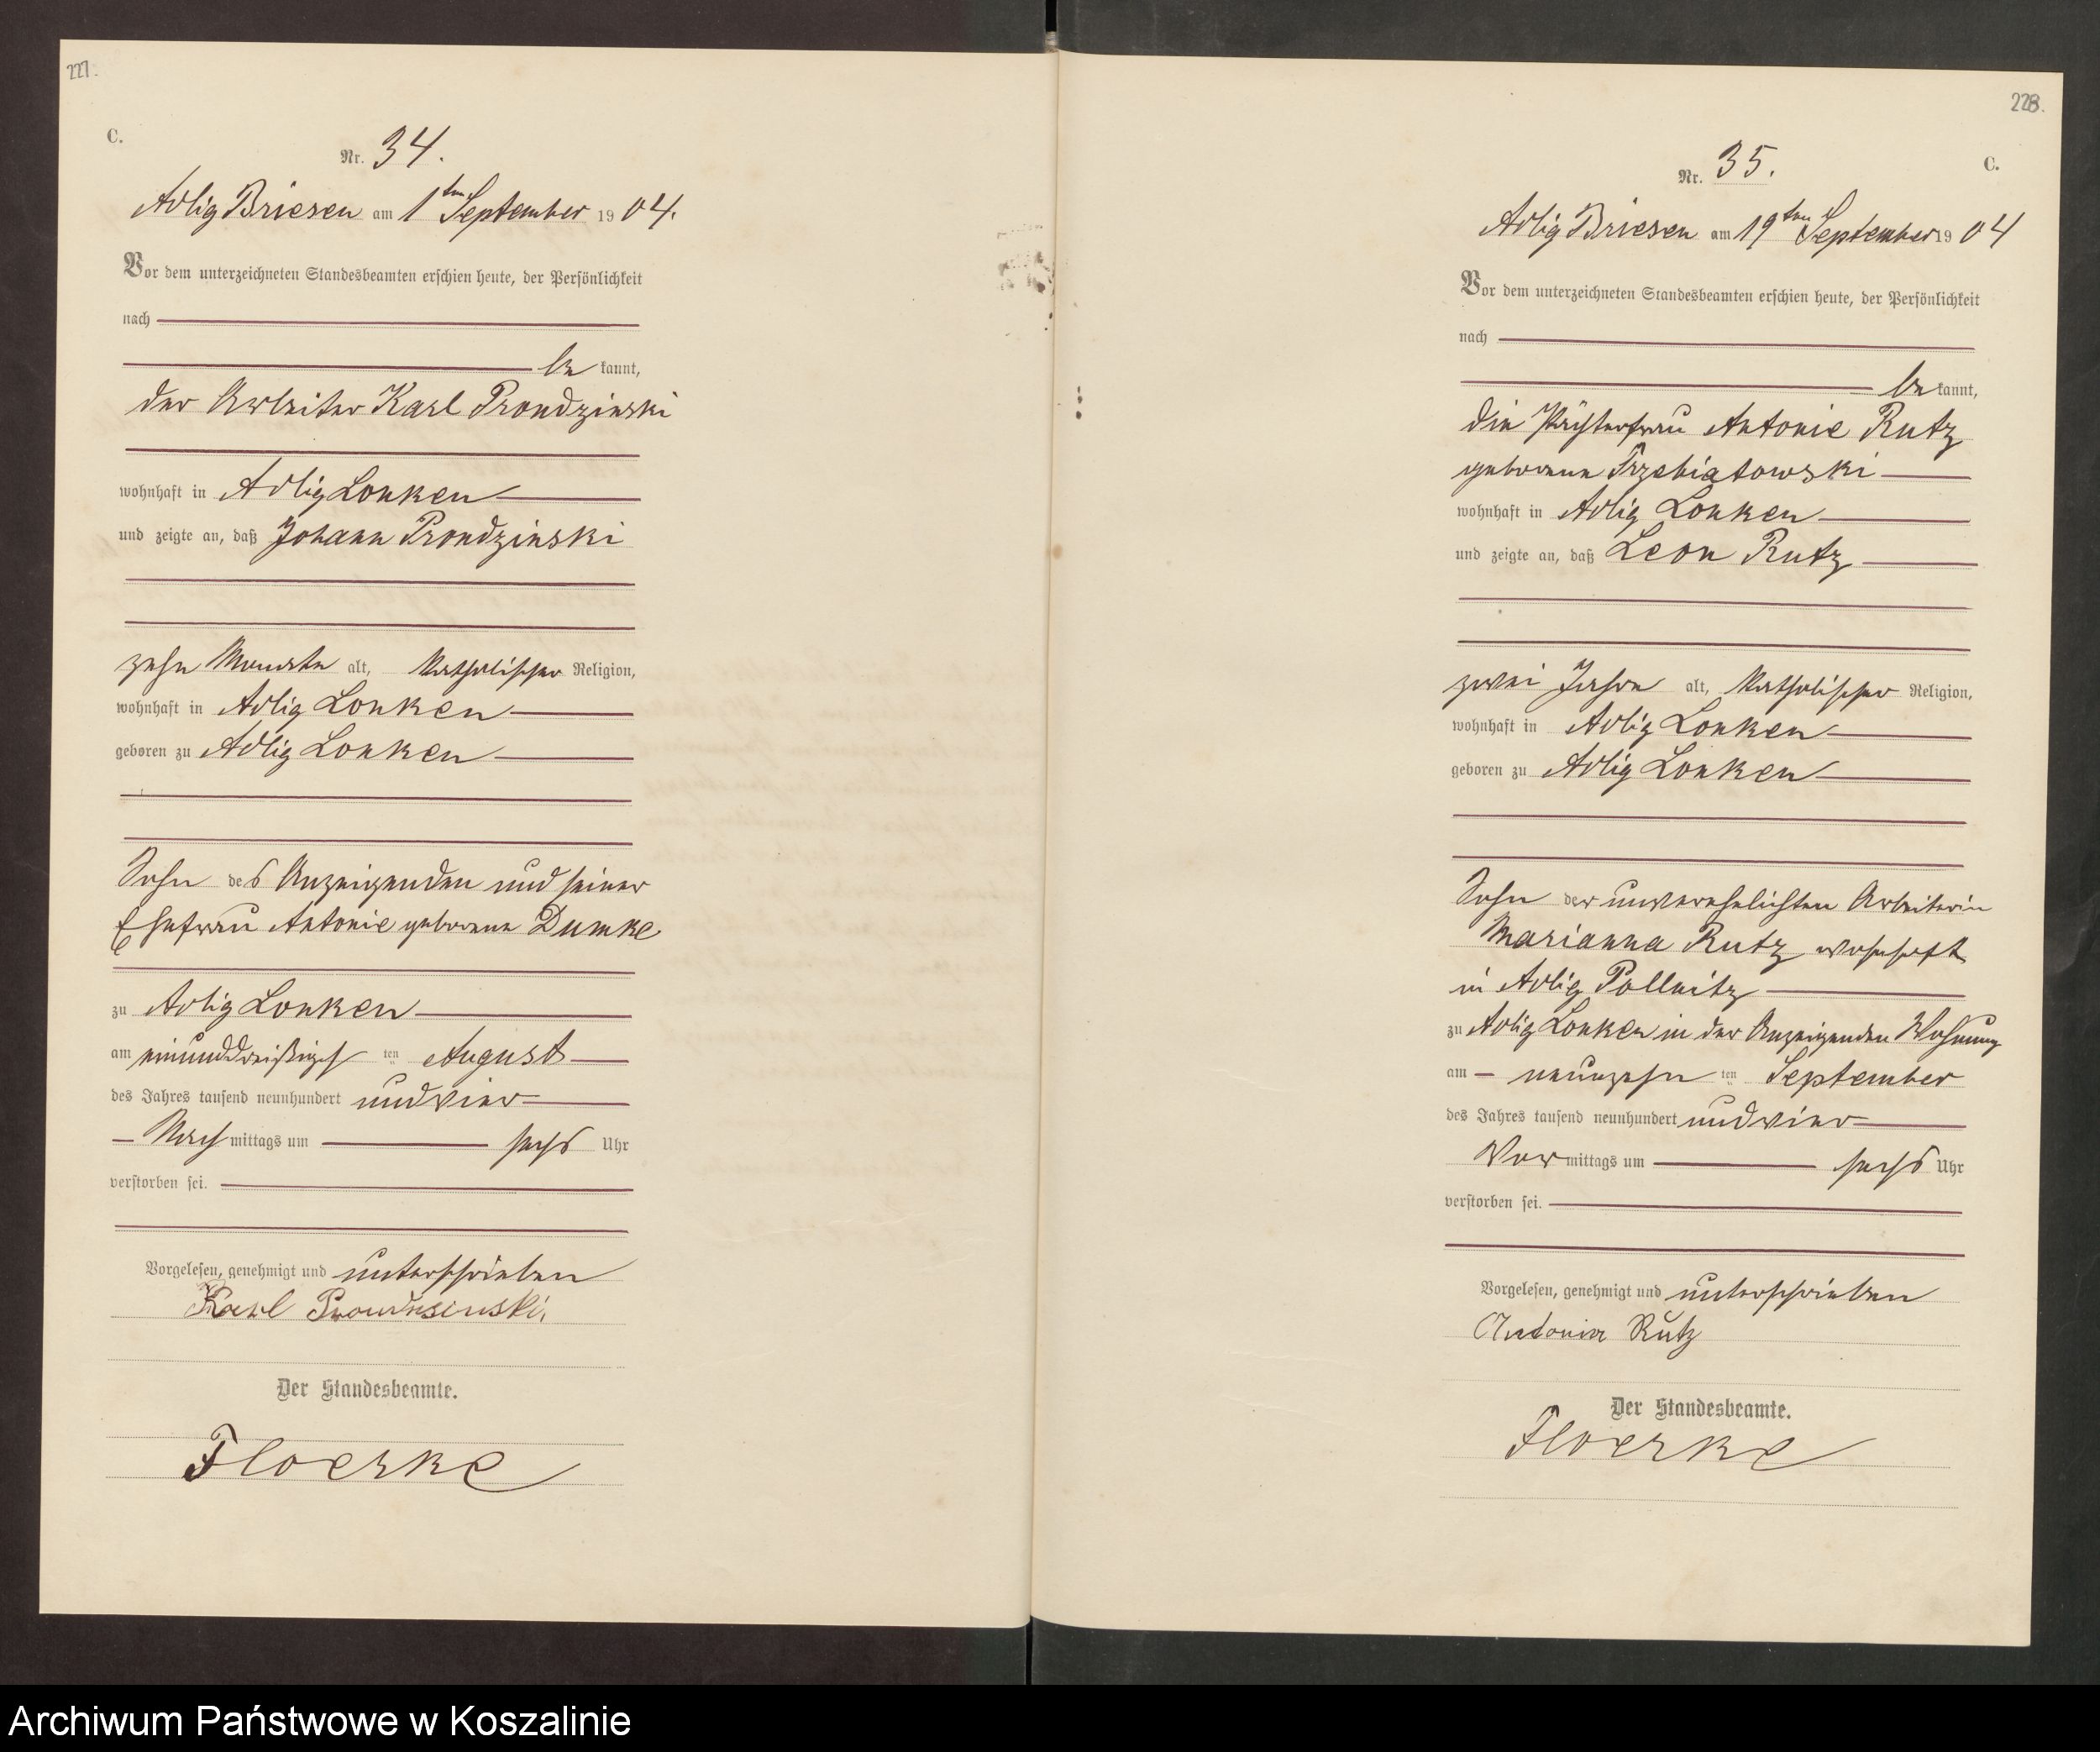 227.
C.
Nr. 34.
Adlig Briesen am 1ten September 1904.
Vor dem unterzeichneten Standesbeamten erschien heute, der Persönlichkeit
nach
be kannt,
der Arbeiter Karl Prondzinski
wohnhaft in Adlig Lonken
und zeigte an, daß Johann Prondzinski
zehn Monate alt, katholischer Religion,
wohnhaft in Adlig Lonken
geboren zu Adlig Lonken
Sohn des Anzeigenden und seiner
Ehefrau Antonie geborene Dumke
zu Adlig Lonken
am einunddreißigst ten August
des Jahres tausend neunhundert und vier
Nach mittags um sechs Uhr
verstorben sei.
Vorgelesen, genehmigt und unterschrieben
Karl Prondzinski.
Der Standesbeamte.
Floerke
228.
C.
Nr. 35.
Adlig Briesen am 19ten September 1904
Vor dem unterzeichneten Standesbeamten erschien heute, der Persönlichkeit
nach
be kannt,
die Pächterfrau Antonie Rutz
geborene Trzebiatowski
wohnhaft in Adlig Lonken
und zeigte an, daß Leon Rutz
zwei Jahre alt, katholischer Religion,
wohnhaft in Adlig Lonken
geboren zu Adlig Lonken
Sohn der unverehelichten Arbeiterin
Marianna Rutz wohnhaft
in Adlig Pollnitz
zu Adlig Lonken in der Anzeigenden Wohnung
am neunzehn ten September
des Jahres tausend neunhundert und vier
Vor mittags um sechs Uhr
verstorben sei.
Vorgelesen, genehmigt und unterschrieben
Antonie Rutz
Der Standesbeamte.
Floerke
Archiwum Państwowe w Koszalinie